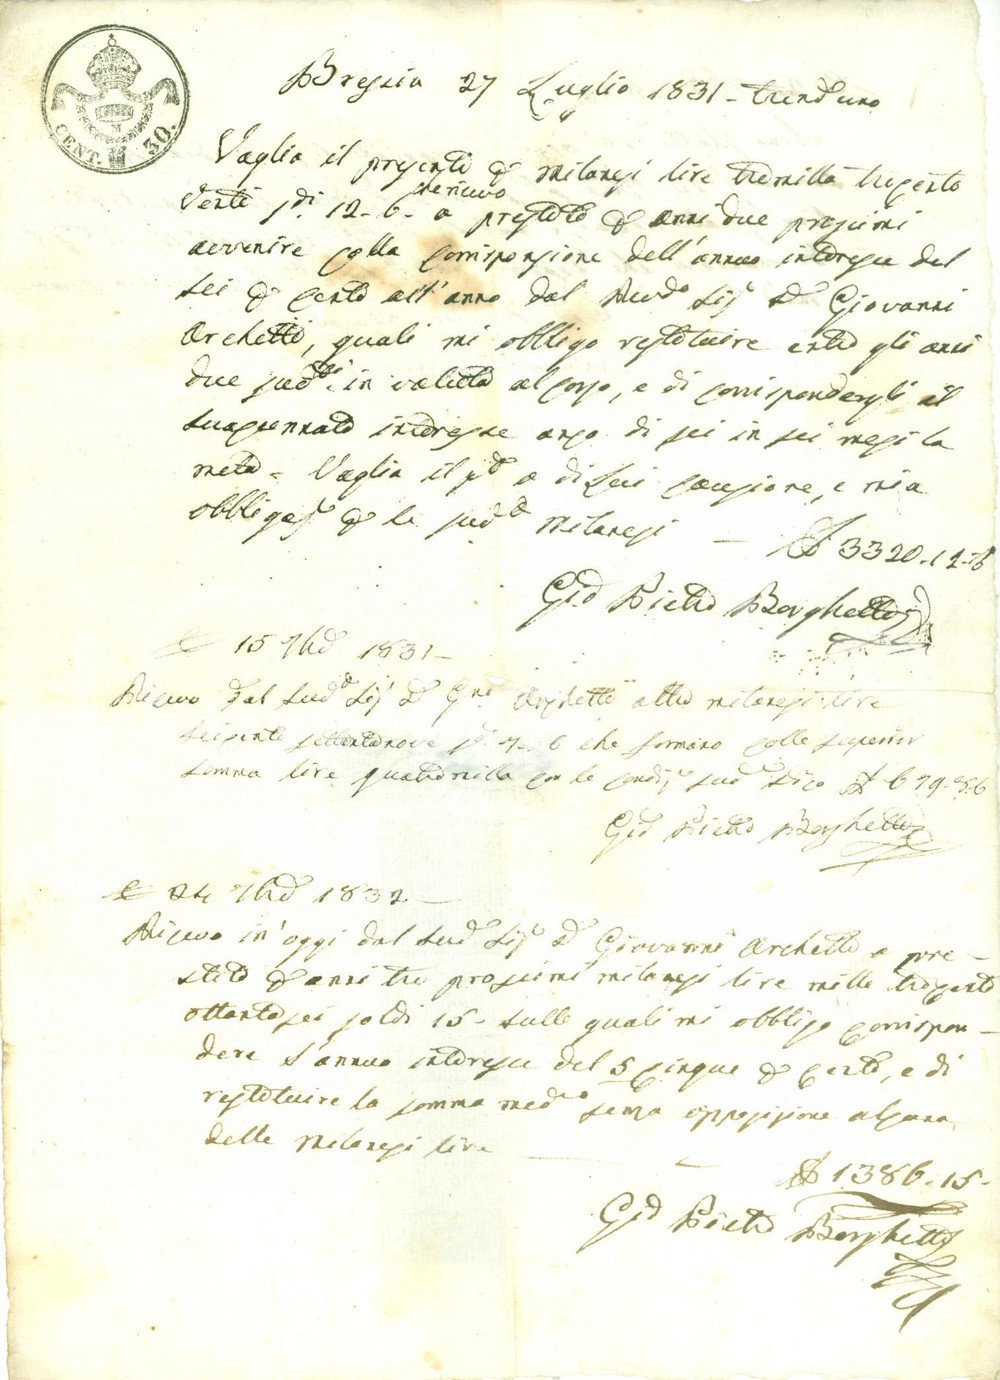 CENT. 30.
Brescia 27 Luglio 1831 - trenduno
Vaglia il presente p milanesi lire tremilla trecento
venti sdi 12 - 6 - che ricevo a prestito p anni due prossimi
avvenire colla corrisponsione dell'annuo interesse del
sei p cento all'anno dal Revdo Sigr Dn Giovanni
Archetti, quali mi obbligo restituire entro gli anni
due sudti in valuta al corso, e di corrispondergli il
suaccennato interesse anco di sei in sei mesi la
metà - Vaglia il pte a di Lui cauzione, e mia
obbligaze p le sudde milanesi — £ 3320-12-6
Gio Pietro Borghetti
£ 15 7bre 1831 -
Ricevo dal sudo Sigr Dn Gni Archetti altre milanesi lire
seicento settantanove sdi 7 - 6 che formano colle superior
somma lire quattromilla con le condizi sude dico £ 679-8-6
Gio Pietro Borghetti
£ 24 7bre 1832 -
Ricevo in oggi dal sudo Sigr Dn Giovanni Archetti a pre-
stito p anni tre prossimi milanesi lire mille trecento
ottantasei soldi 15 - sulle quali mi obbligo corrispon-
dere l'annuo interesse del 5 cinque p cento, e di
restituire la somma meda senza opposizione alcuna
delle milanesi lire — £ 1386-15-
Gio Pietro Borghetti